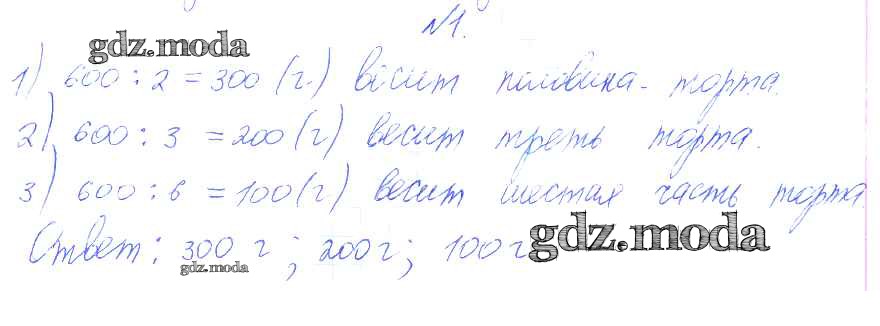 №1.
gdz.moda
1) 600 : 2 = 300 (г) весит половина торта.
2) 600 : 3 = 200 (г) весит треть торта.
3) 600 : 6 = 100 (г) весит шестая часть торта.
Ответ: 300 г; 200 г; 100 г
gdz.moda
gdz.moda